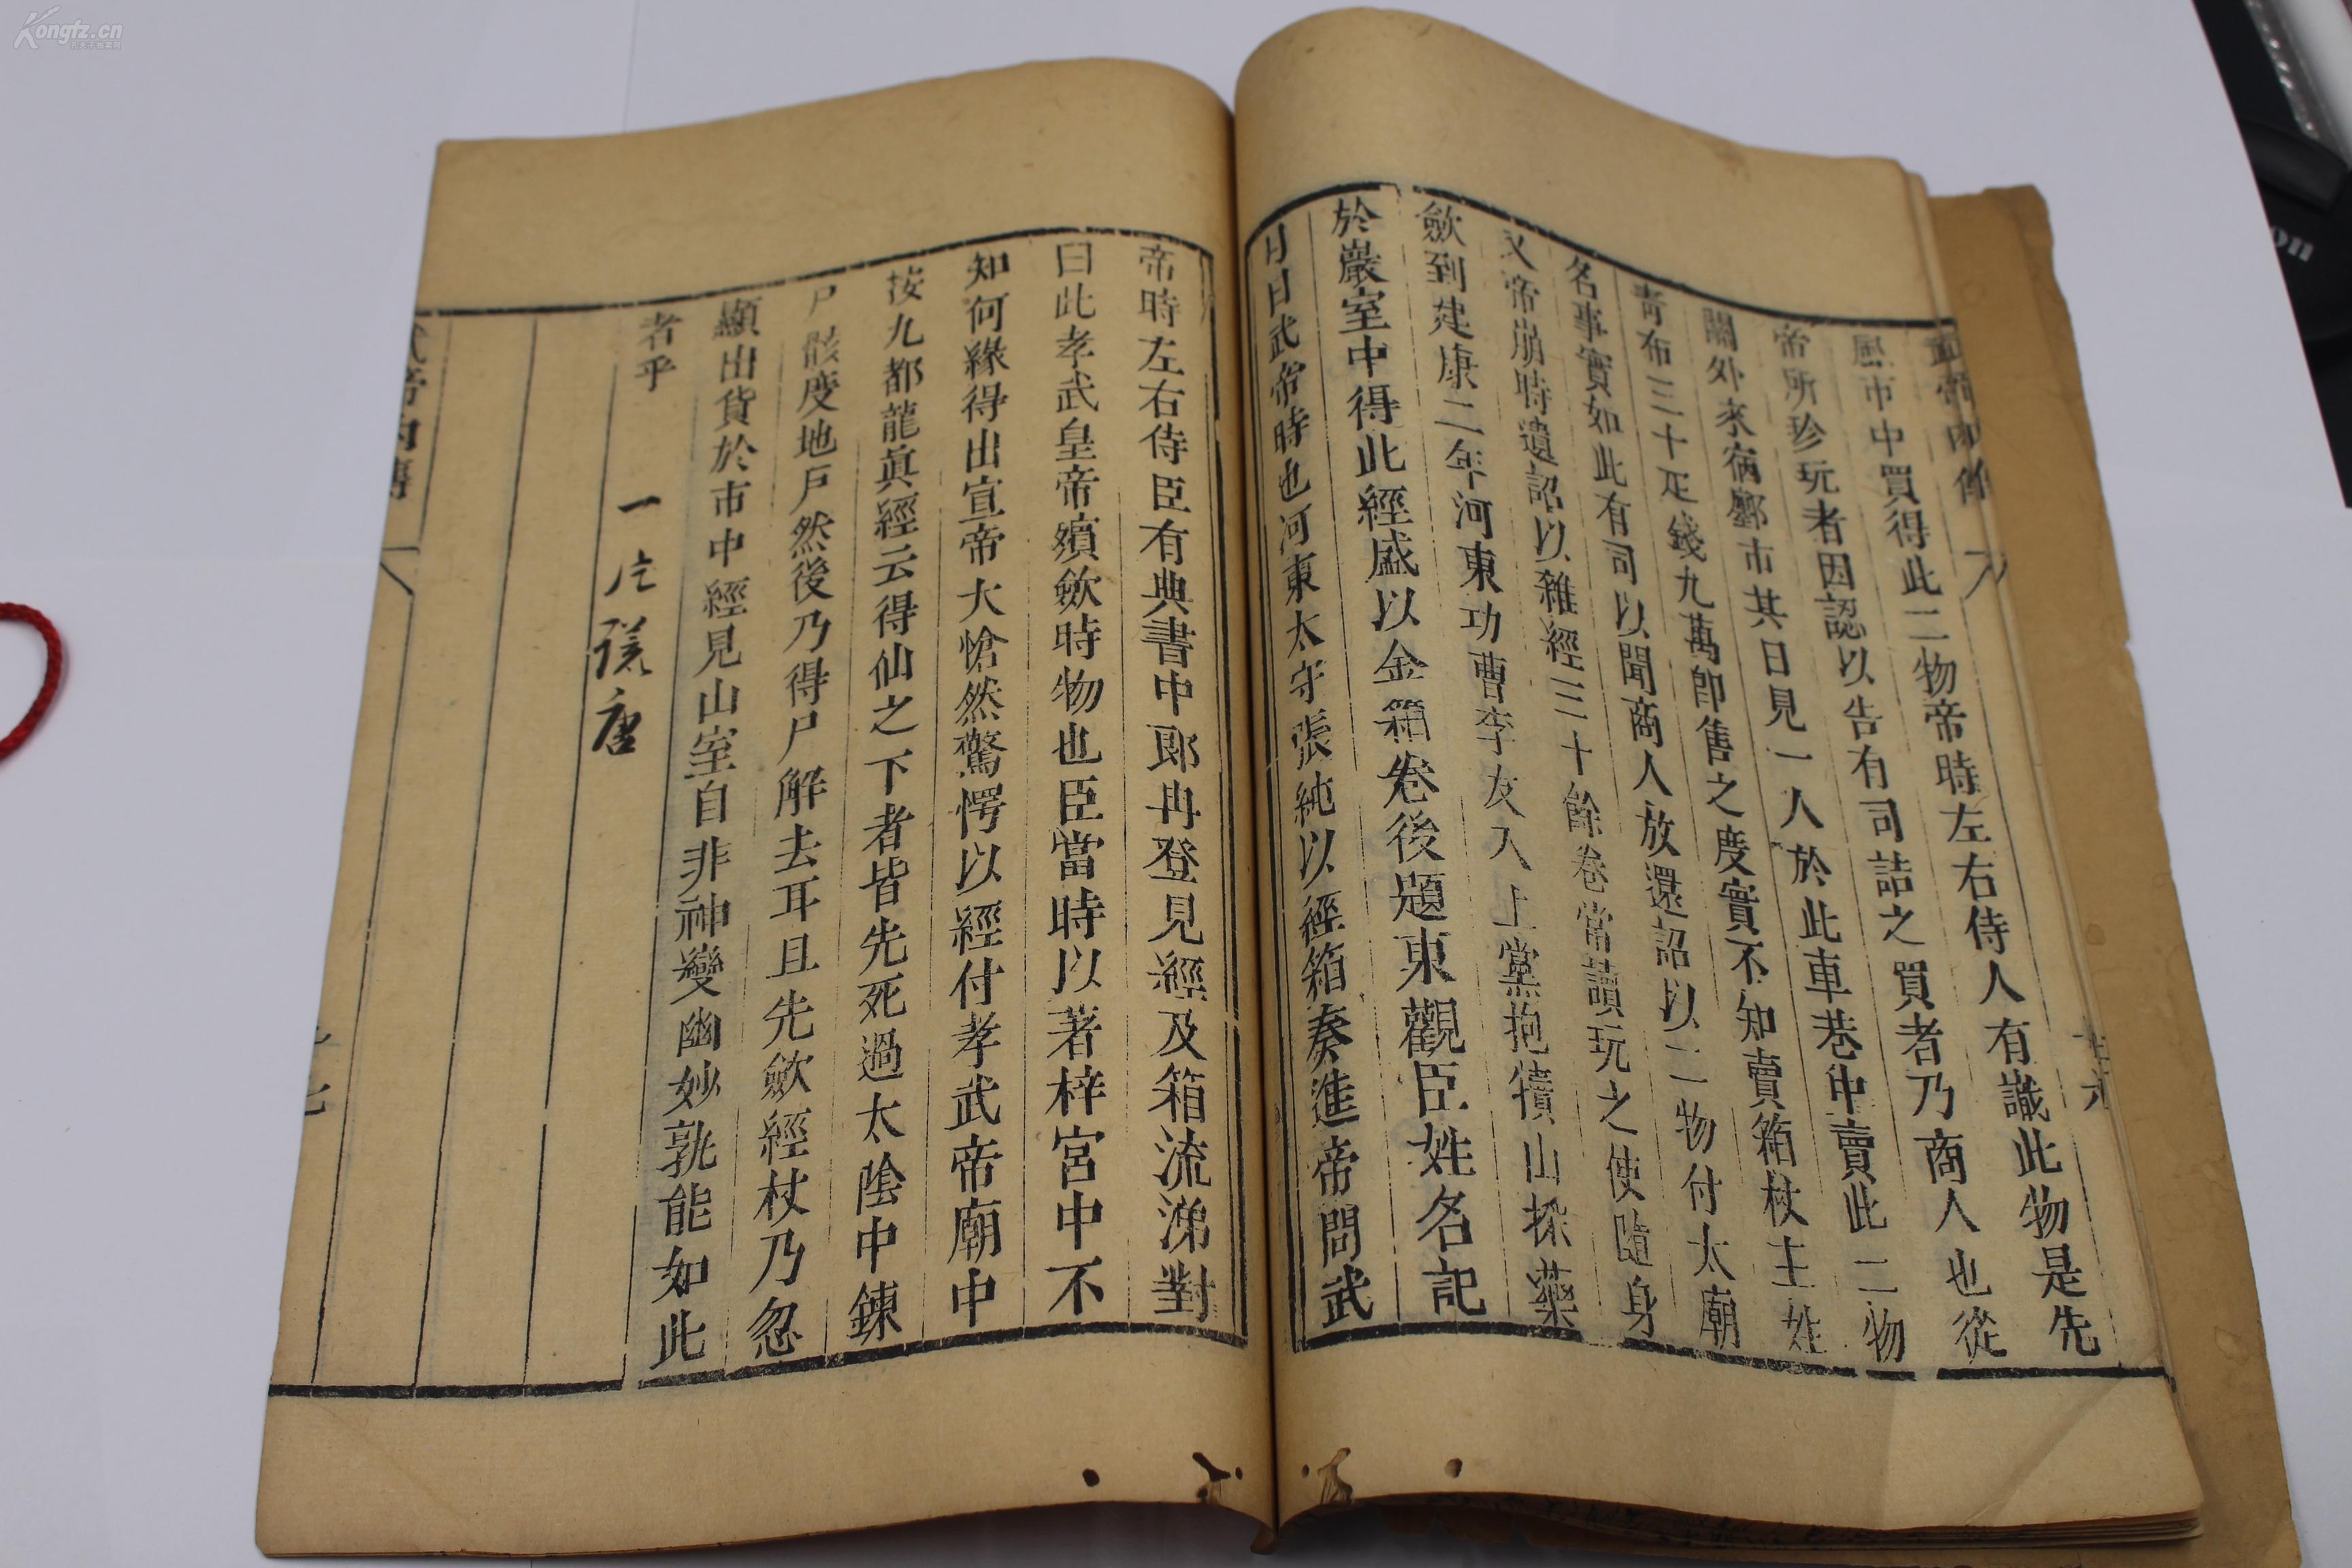 武帝內傳
風市中買得此二物帝時左右侍人有識此物是先
帝所珍玩者因認以告有司詰之買者乃商人也從
關外來宿鄽市其日見一人於此車巷中賣此二物
青布三十疋錢九萬卽售之度實不知賣箱杖主姓
名事實如此有司以聞商人放還詔以二物付太廟
又帝崩時遺詔以雜經三十餘卷常讀玩之使隨身
歛到建康二年河東功曹李友入上黨抱犢山採藥
於巖室中得此經盛以金箱卷後題東觀臣姓名記
月日武帝時也河東太守張純以經箱奏進帝問武
帝時左右侍臣有典書中郎冉登見經及箱流涕對
曰此孝武皇帝殯歛時物也臣當時以著梓宮中不
知何緣得出宣帝大愴然驚愕以經付孝武帝廟中
按九都龍眞經云得仙之下者皆先死過太陰中鍊
尸骸度地戶然後乃得尸解去耳且先歛經杖乃忽
顯出貨於市中經見山室自非神變幽妙孰能如此
者乎
一片謊唐
武帝內傳
Kongfz.cn